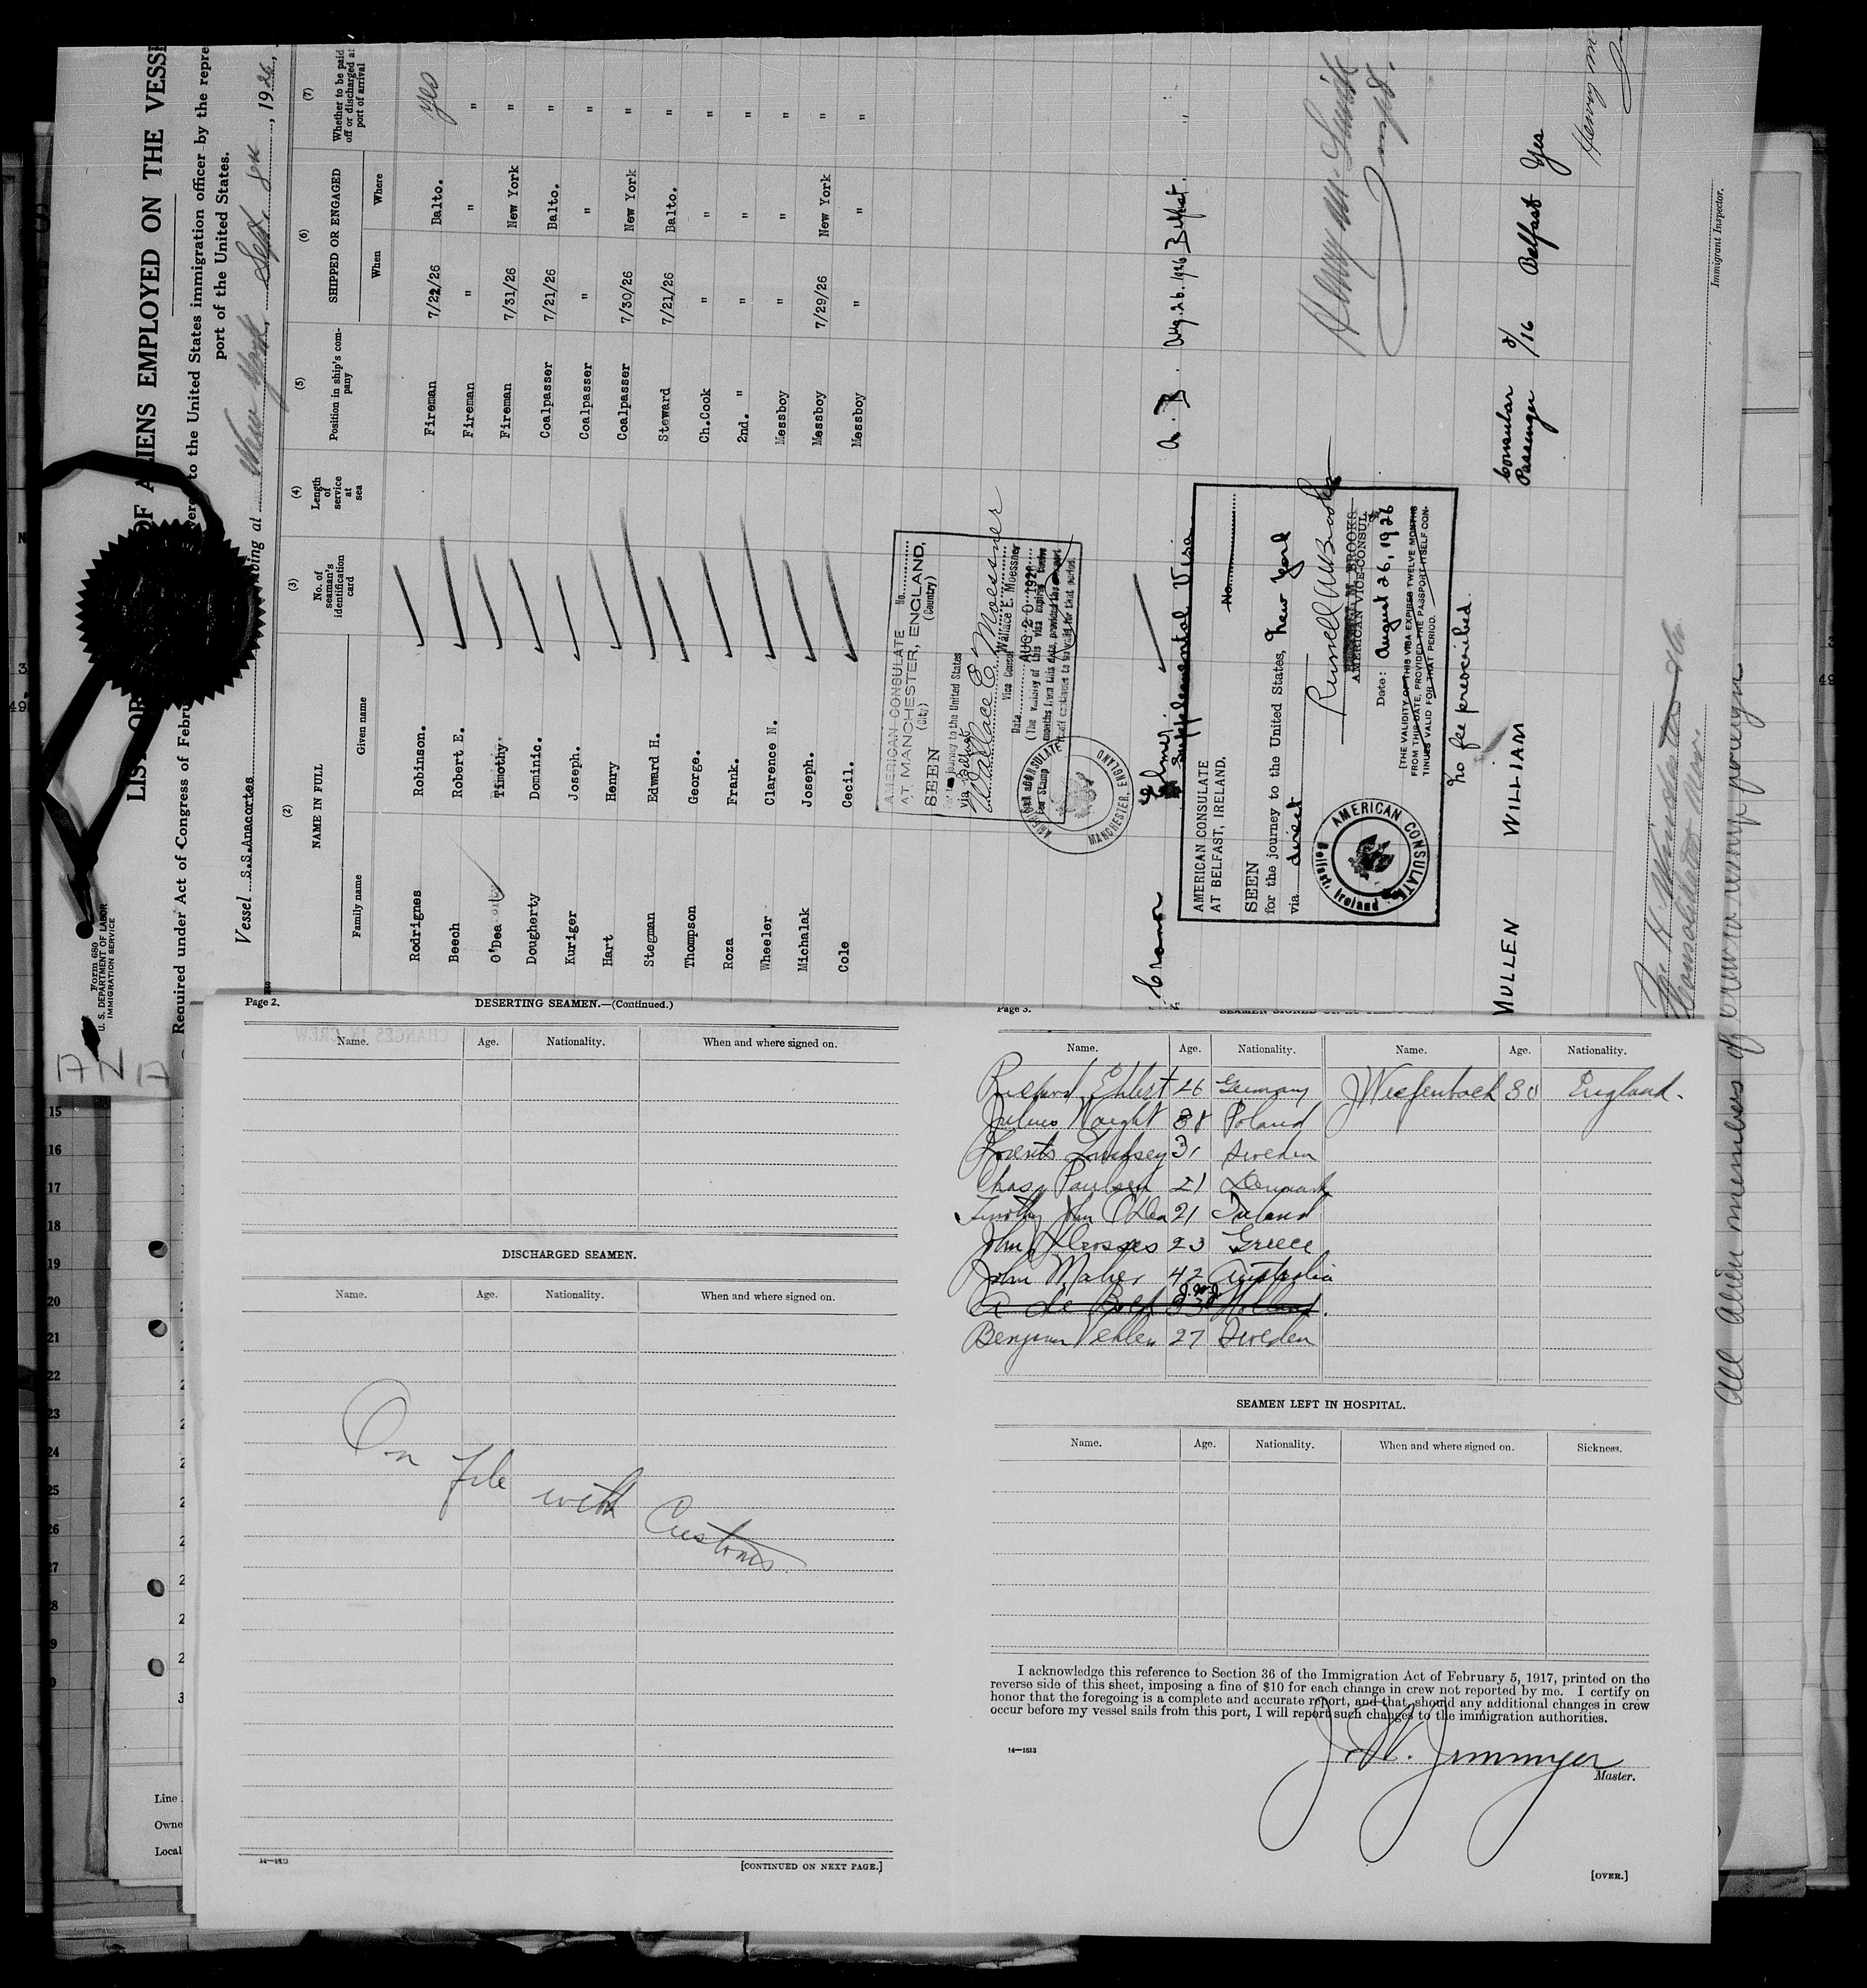 LIST OR
OF ALIENS EMPLOYED ON THE VESSE
Required under Act of Congress of Febru
vered to the United States immigration officer by the repre
port of the United States.
Form 680
U. S. DEPARTMENT OF LABOR
IMMIGRATION SERVICE
Vessel S.S.Anacortes
ving at New York, Sept. 8th, 1926,
(2) (3) (4) (5) (6) (7)
NAME IN FULL
Family name Given name
No. of seaman's identification card
Length of service at sea
Position in ship's company
SHIPPED OR ENGAGED
When Where
Whether to be paid off or discharged at port of arrival
Rodrignes Robinson. Fireman 7/22/26 Balto. yes
Beech Robert E. Fireman " " "
O'Dea Timothy. Fireman 7/31/26 New York "
Dougherty Dominic. Coalpasser 7/21/26 Balto. "
Kuriger Joseph. Coalpasser " " "
Hart Henry Coalpasser 7/30/26 New York "
Stegman Edward H. Steward 7/21/26 Balto. "
Thompson George. Ch.Cook " " "
Roza Frank. 2nd. " " " "
Wheeler Clarence N. Messboy " " "
Michalak Joseph. Messboy 7/29/26 New York "
Cole Cecil. Messboy " " "
AMERICAN CONSULATE
AT MANCHESTER, ENGLAND,
(City) (Country)
No.
SEEN
journey to the United States
via Belfast
Wallace E. Moessner
Vice Consul Wallace E. Moessner
Date AUG 20 1926
MANCHESTER, ENGLAND
Cramer Elmer A. B. Aug. 26. 1926 Belfast. "
Supplemental Visa
AMERICAN CONSULATE
AT BELFAST, IRELAND.
No.
SEEN
for the journey to the United States, New York
via direct
Russell M. Brooks
RUSSELL M. BROOKS
AMERICAN VICE-CONSUL
Date: August 26, 1926
[THE VALIDITY OF THIS VISA EXPIRES TWELVE MONTHS
FROM THIS DATE, PROVIDED THE PASSPORT ITSELF CON-
TINUES VALID FOR THAT PERIOD.
AMERICAN CONSULATE
Belfast, Ireland
No fee prescribed.
MULLEN WILLIAM Consular Passenger 8/16 Belfast Yes
Immigrant Inspector.
All alien members of crew
ANA
Page 2. DESERTING SEAMEN.—(Continued.)
Name. Age. Nationality. When and where signed on.
DISCHARGED SEAMEN.
Name. Age. Nationality. When and where signed on.
On file with Customs.
14—1613
[CONTINUED ON NEXT PAGE.]
Page 3.
Name. Age. Nationality. Name. Age. Nationality.
Richard Ehlert 26 Germany J Wiefenbach 30 England.
Julius Naight 38 Poland
31 Sweden
Chas Paulsen 21 Denmark
Timothy John O'Dea 21 Ireland
John 23 Greece
John Maher 42 Australia
A de Holland.
Benjamin 27 Sweden
SEAMEN LEFT IN HOSPITAL.
Name. Age. Nationality. When and where signed on. Sickness.
I acknowledge this reference to Section 36 of the Immigration Act of February 5, 1917, printed on the
reverse side of this sheet, imposing a fine of $10 for each change in crew not reported by me. I certify on
honor that the foregoing is a complete and accurate report, and that, should any additional changes in crew
occur before my vessel sails from this port, I will report such changes to the immigration authorities.
14—1613
Master.
[OVER.]
15
16
17
18
19
20
21
22
23
24
25
26
27
28
Line
Owne
Local